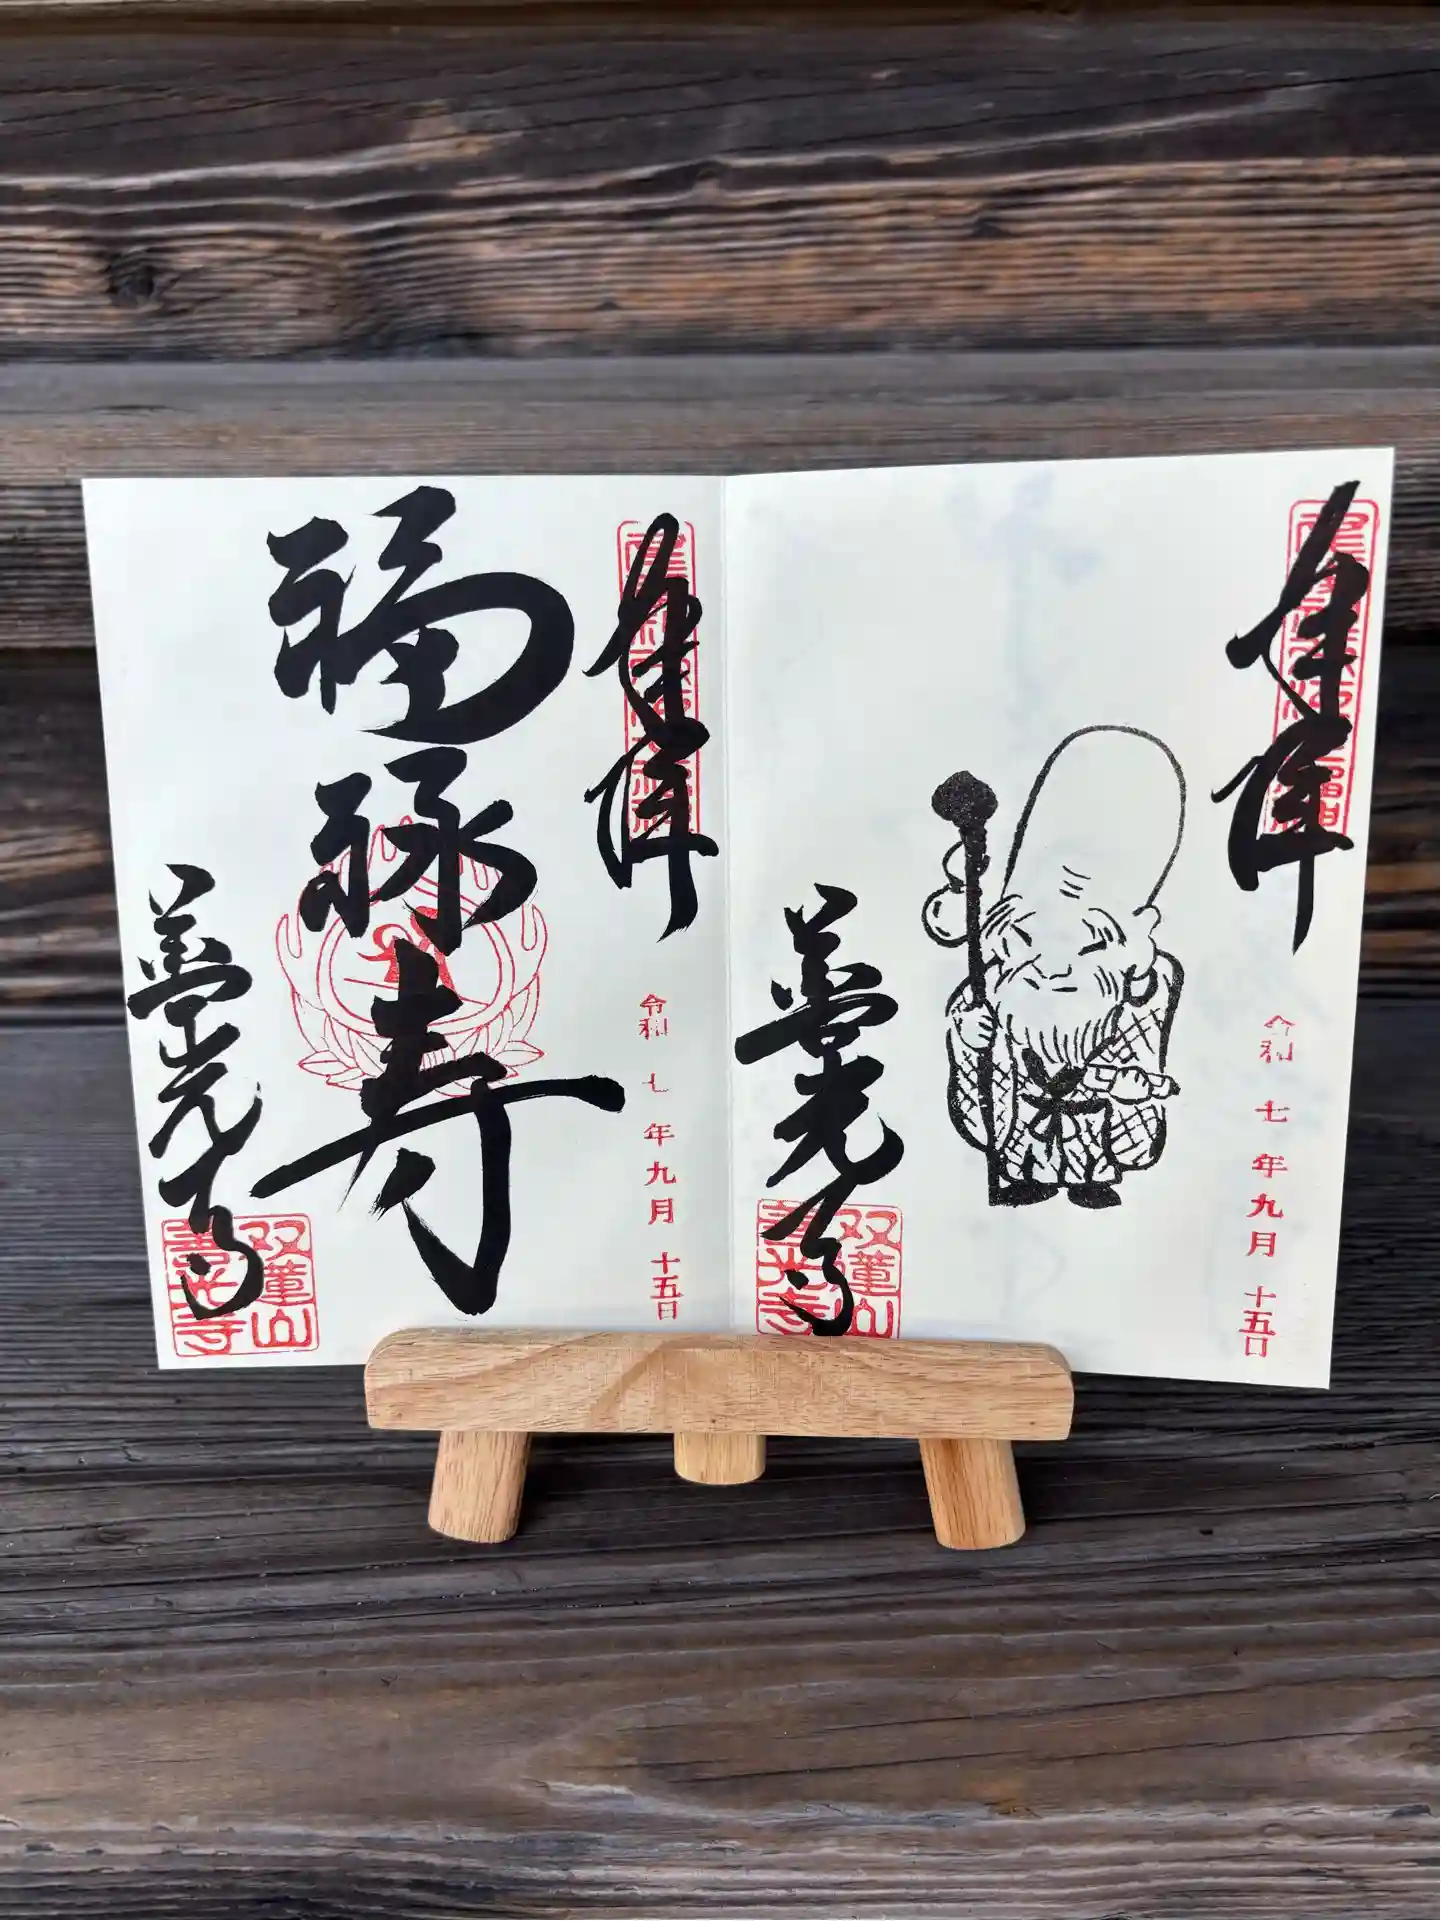 奉拝
令和 七 年 九 月 十五日
福禄寿
善光寺
双蓮山
善光寺
奉拝
令和 七 年 九 月 十五日
善光寺
善光寺